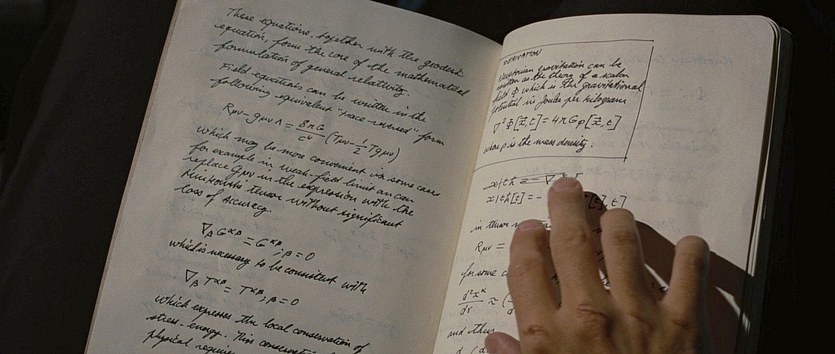 These equations, together with the geodesic
equation, form the core of the mathematical
formulation of general relativity.
Field equations can be written in the
following equivalent "trace-reversed" form
Rμν - gμν Λ = 8πG/c⁴ (Tμν - 1/2 T gμν)
which may be more convenient in some cases
for example in weak-field limit an can
replace gμν in the expression with the
Minkowski tensor without significant
loss of accuracy.
∇β G^αβ = G^αβ;β = 0
which is necessary to be consistent with
∇β T^αβ = T^αβ;β = 0
which expresses the local conservation of
stress-energy. This
physical
DERIVATION
Newtonian gravitation can be
written as the theory of a scalar
field Φ which is the gravitational
potential in joules per kilogram
∇²Φ[x⃗,t] = 4πGρ[x⃗,t]
where ρ is the mass density.
[t] = -
[x⃗,t]
in
Rμν =
for some
d²x^α
and thus